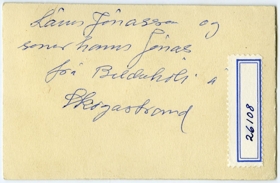 Lárus Jónasson og
sonur hans Jónas
frá Bíldhóli á
Skógarströnd
26108